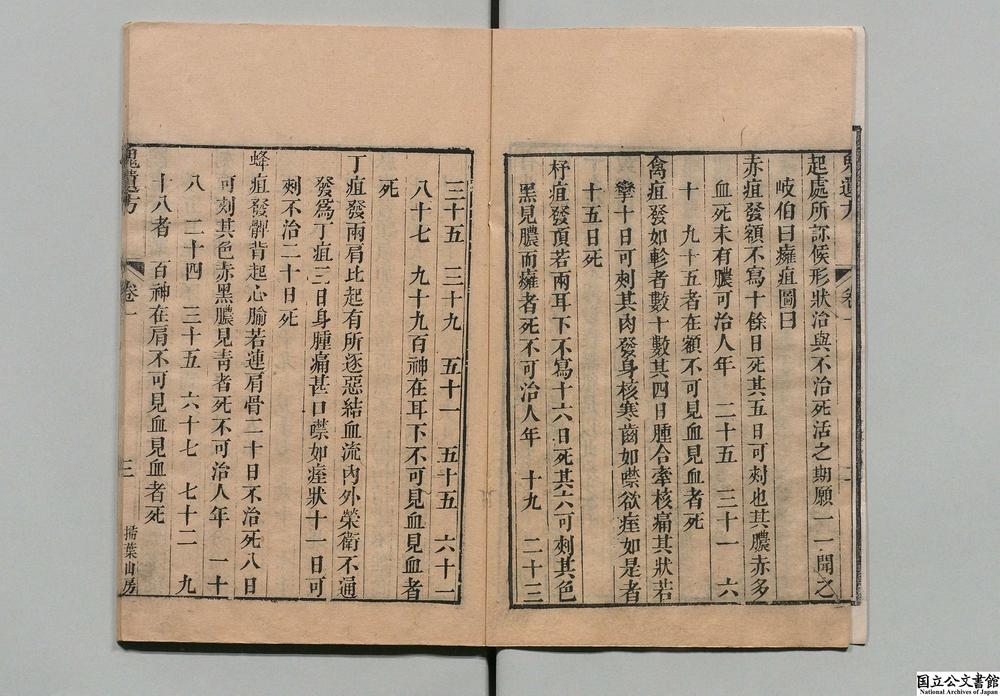 鬼遺方
卷一
二
起處所診候形狀治與不治死活之期願一一聞之
岐伯曰癰疽圖曰
赤疽發額不寫十餘日死其五日可刾也其膿赤多
血死未有膿可治人年 二十五 三十一 六
十 九十五者在額不可見血見血者死
禽疽發如軫者數十數其四日腫合牽核痛其狀若
攣十日可刾其肉發身核寒齒如噤欲痓如是者
十五日死
杼疽發頂若兩耳下不寫十六日死其六可刾其色
黑見膿而癰者死不可治人年 十九 二十三
三十五 三十九 五十一 五十五 六十一
八十七 九十九百神在耳下不可見血見血者
死
丁疽發兩肩比起有所逐惡結血流內外榮衛不通
發爲丁疽三日身腫痛甚口噤如痓狀十一日可
刾不治二十日死
蜂疽發髀背起心腧若連肩骨二十日不治死八日
可刾其色赤黑膿見靑者死不可治人年 一十
八 二十四 三十五 六十七 七十二 九
十八者 百神在肩不可見血見血者死
鬼遺方
卷一
三
掃葉山房
国立公文書館
National Archives of Japan